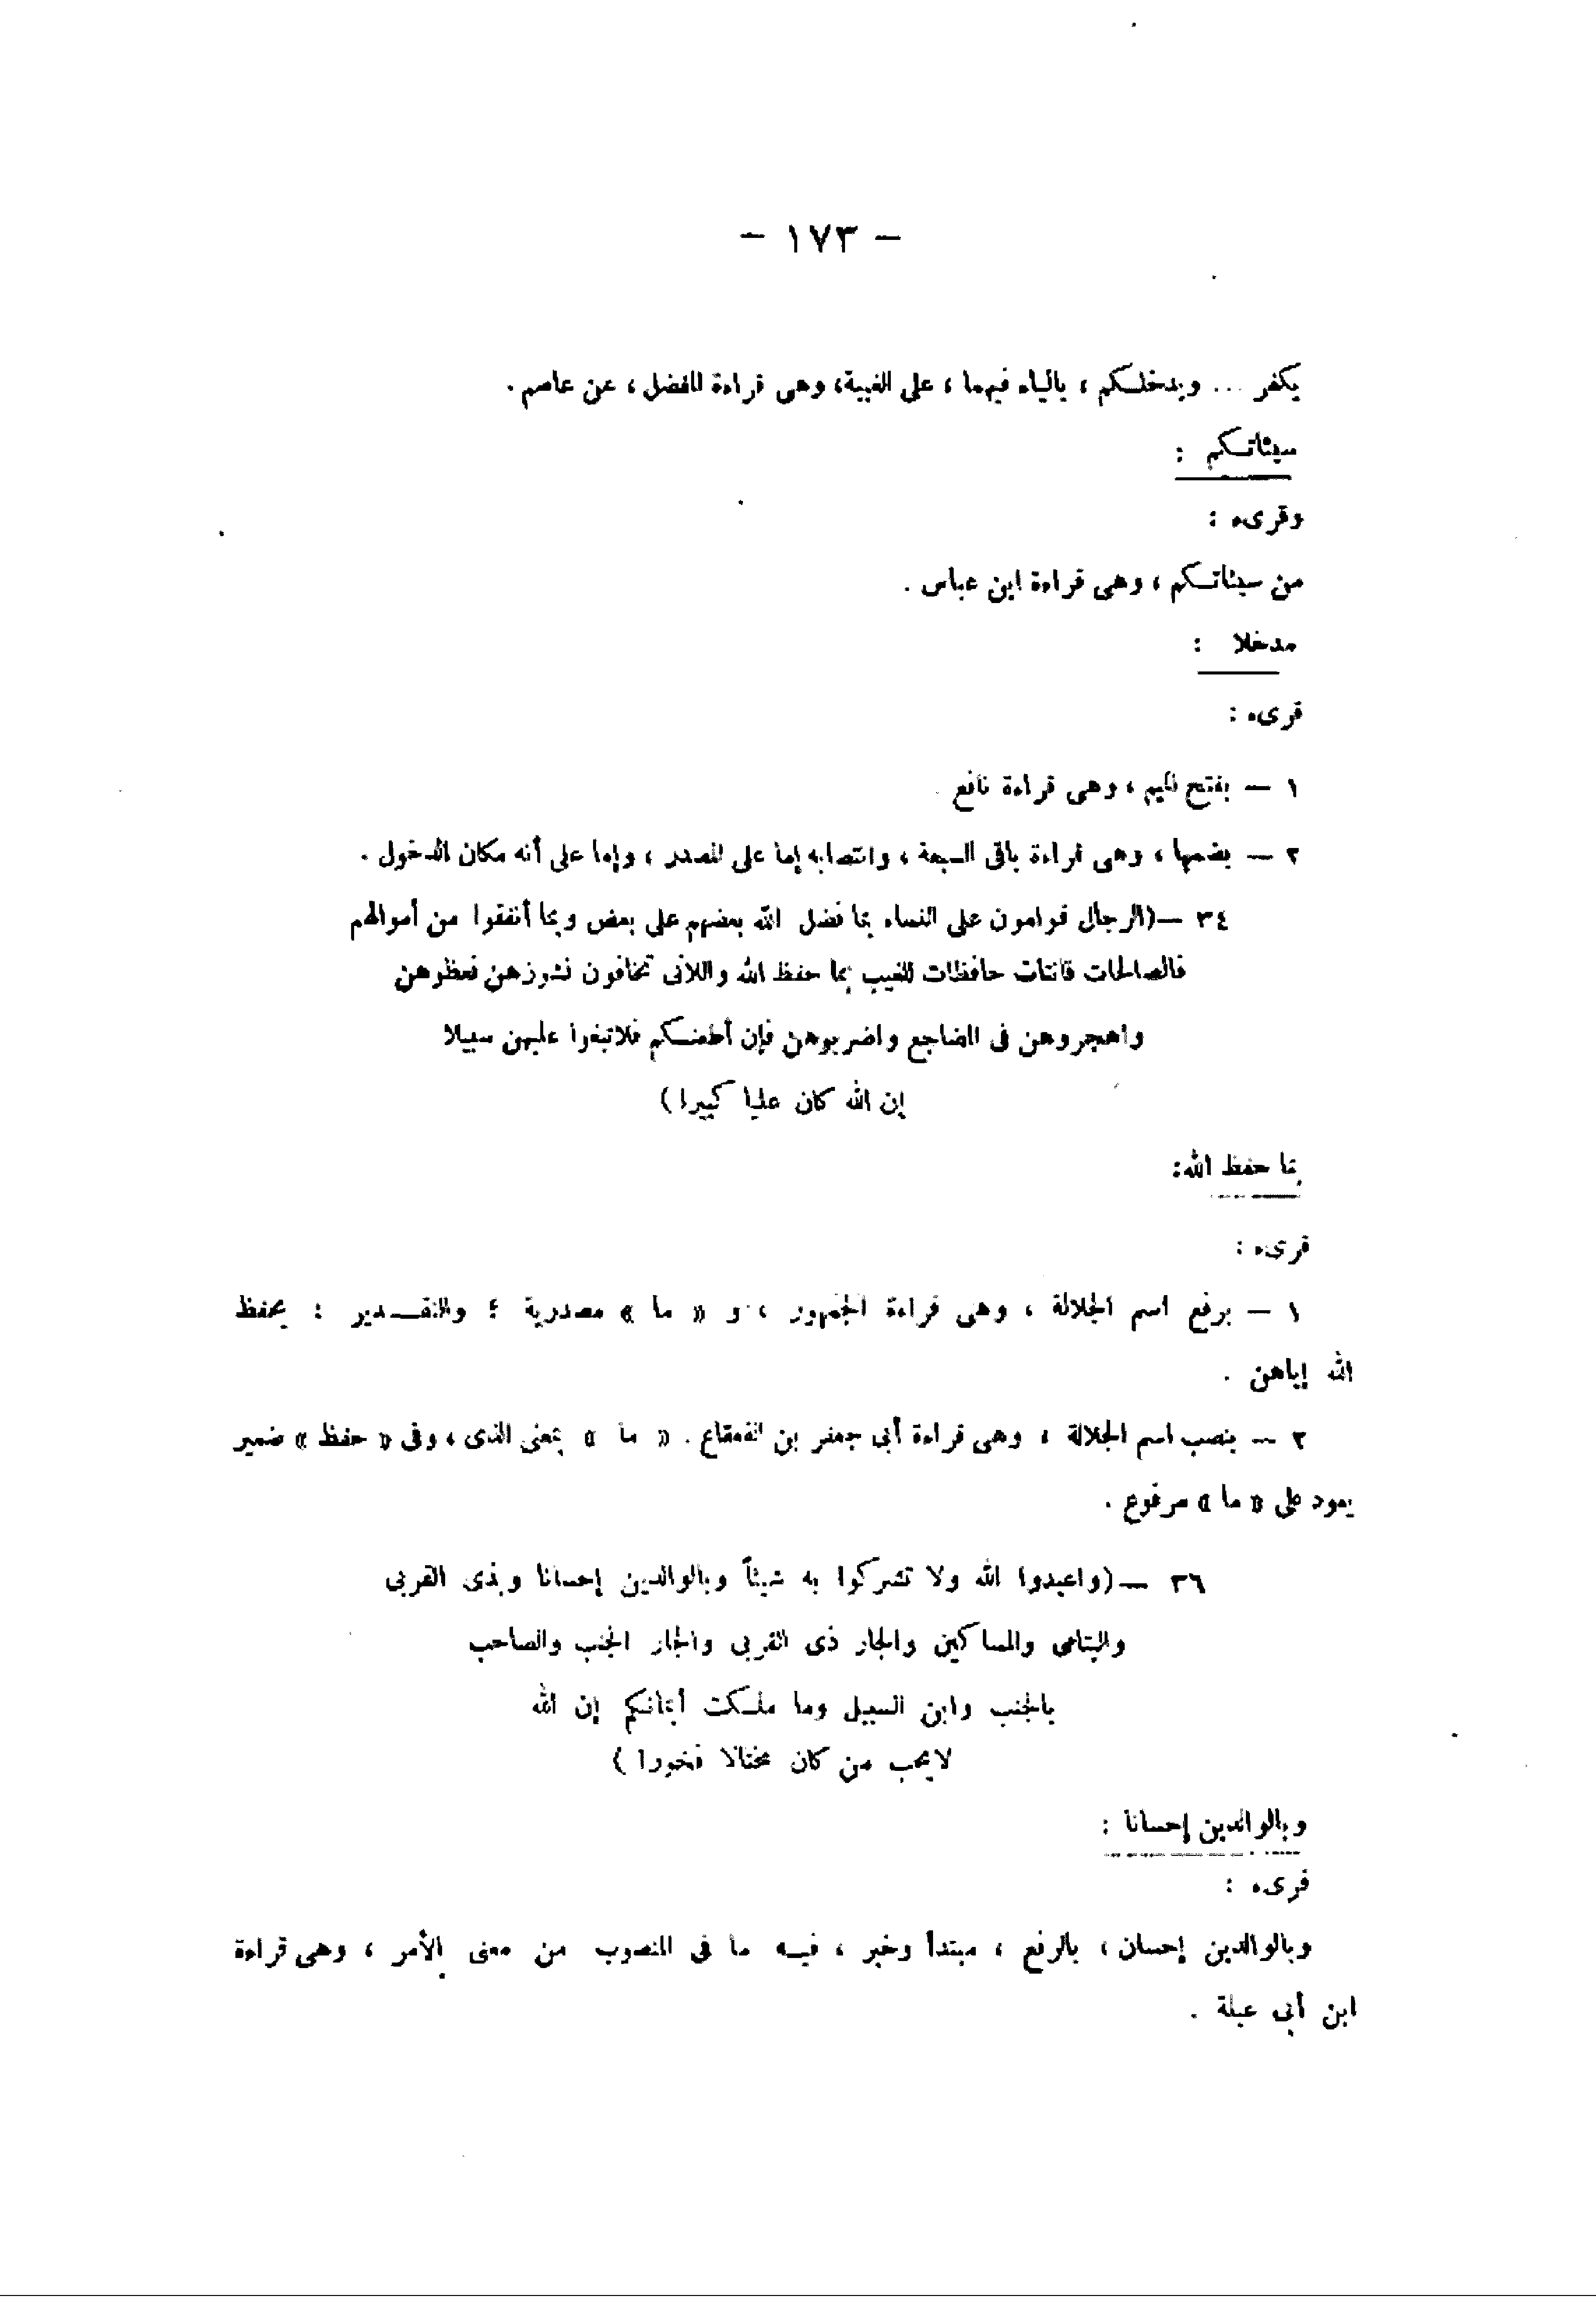 — ١٧٣ —
يكفر ... ويدخلكم ، بالياء فيهما ، على الغيبة، وهى قراءة المفضل ، عن عاصم .
سيئاتكم :
وقرىء :
من سيئاتكم ، وهى قراءة ابن عباس .
مدخلا :
قرىء :
١ — بفتح الميم ، وهى قراءة نافع
٢ — بضمها ، وهى قراءة باقى السبعة ، وانتصابه إما على المصدر ، وإما على أنه مكان الدخول .
٣٤ —(الرجال قوامون على النساء بما فضل الله بعضهم على بعض وبما أنفقوا من أموالهم
فالصالحات قانتات حافظات للغيب بما حفظ الله واللاتى تخافون نشوزهن فعظوهن
واهجروهن فى المضاجع واضربوهن فإن أطعنكم فلاتبغوا عليهن سبيلا
إن الله كان عليا كبيرا )
بما حفظ الله:
قرىء :
١ — برفع اسم الجلالة ، وهى قراءة الجمهور ، و « ما » مصدرية ؛ والتقدير : بحفظ
الله إياهن .
٢ — بنصب اسم الجلالة ، وهى قراءة أبى جعفر بن القعقاع . « ما » بمعنى الذى ، وفى « حفظ » ضمير
يعود على « ما » مرفوع .
٣٦ —(واعبدوا الله ولا تشركوا به شيئاً وبالوالدين إحسانا وبذى القربى
واليتامى والمساكين والجار ذى القربى والجار الجنب والصاحب
بالجنب وابن السبيل وما ملكت أيمانكم إن الله
لايحب من كان مختالا فخورا )
وبالوالدين إحسانا :
قرىء :
وبالوالدين إحسان ، بالرفع ، مبتدأ وخبر ، فيه ما فى المنصوب من معنى الأمر ، وهى قراءة
ابن أبى عبلة .